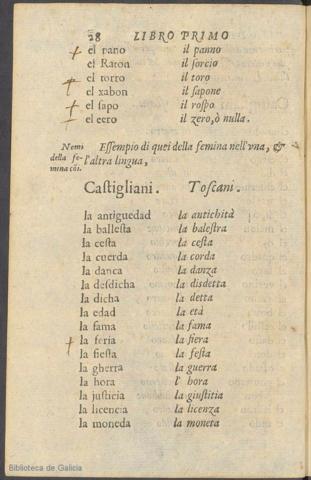 28 LIBRO PRIMO
el pano il panno
el Raton il sorcio
el torro il toro
el xabon il sapone
el sapo il rospo
el cero il zero, ò nulla.
Nomi della femina cõi.
Essempio di quei della femina nell'vna, &
l'altra lingua,
Castigliani. Toscani.
la antiguedad la antichità
la ballesta la balestra
la cesta la cesta
la cuerda la corda
la dança la danza
la desdicha la disdetta
la dicha la detta
la edad la età
la fama la fama
la feria la fiera
la fiesta la festa
la gherra la guerra
la hora l' hora
la justicia la giustitia
la licencia la licenza
la moneda la moneta
Biblioteca de Galicia